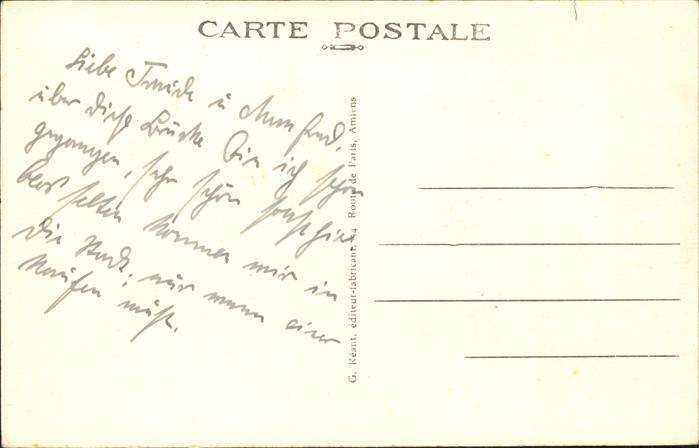 CARTE POSTALE
Liebe Traude u Manfred,
über diese Brücke bin ich schon
gegangen, sehr schön sonst hier
bloß selten kommen wir in
die Stadt; nur wenn einer
kaufen muß.
G. Réant, éditeur-fabricant, 24 Route de Paris, Amiens